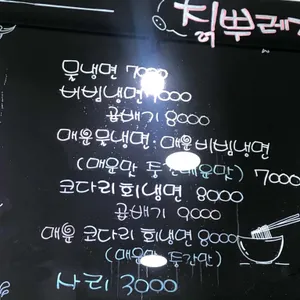 칡뿌레
물냉면 7000
비빔냉면 7000
곱배기 8000
매운물냉면·매운비빔냉면
(매운맛 중간매운맛) 7000
코다리회냉면 8000
곱배기 9000
매운 코다리 회냉면 8000
(매운맛 중간맛)
사리 3000